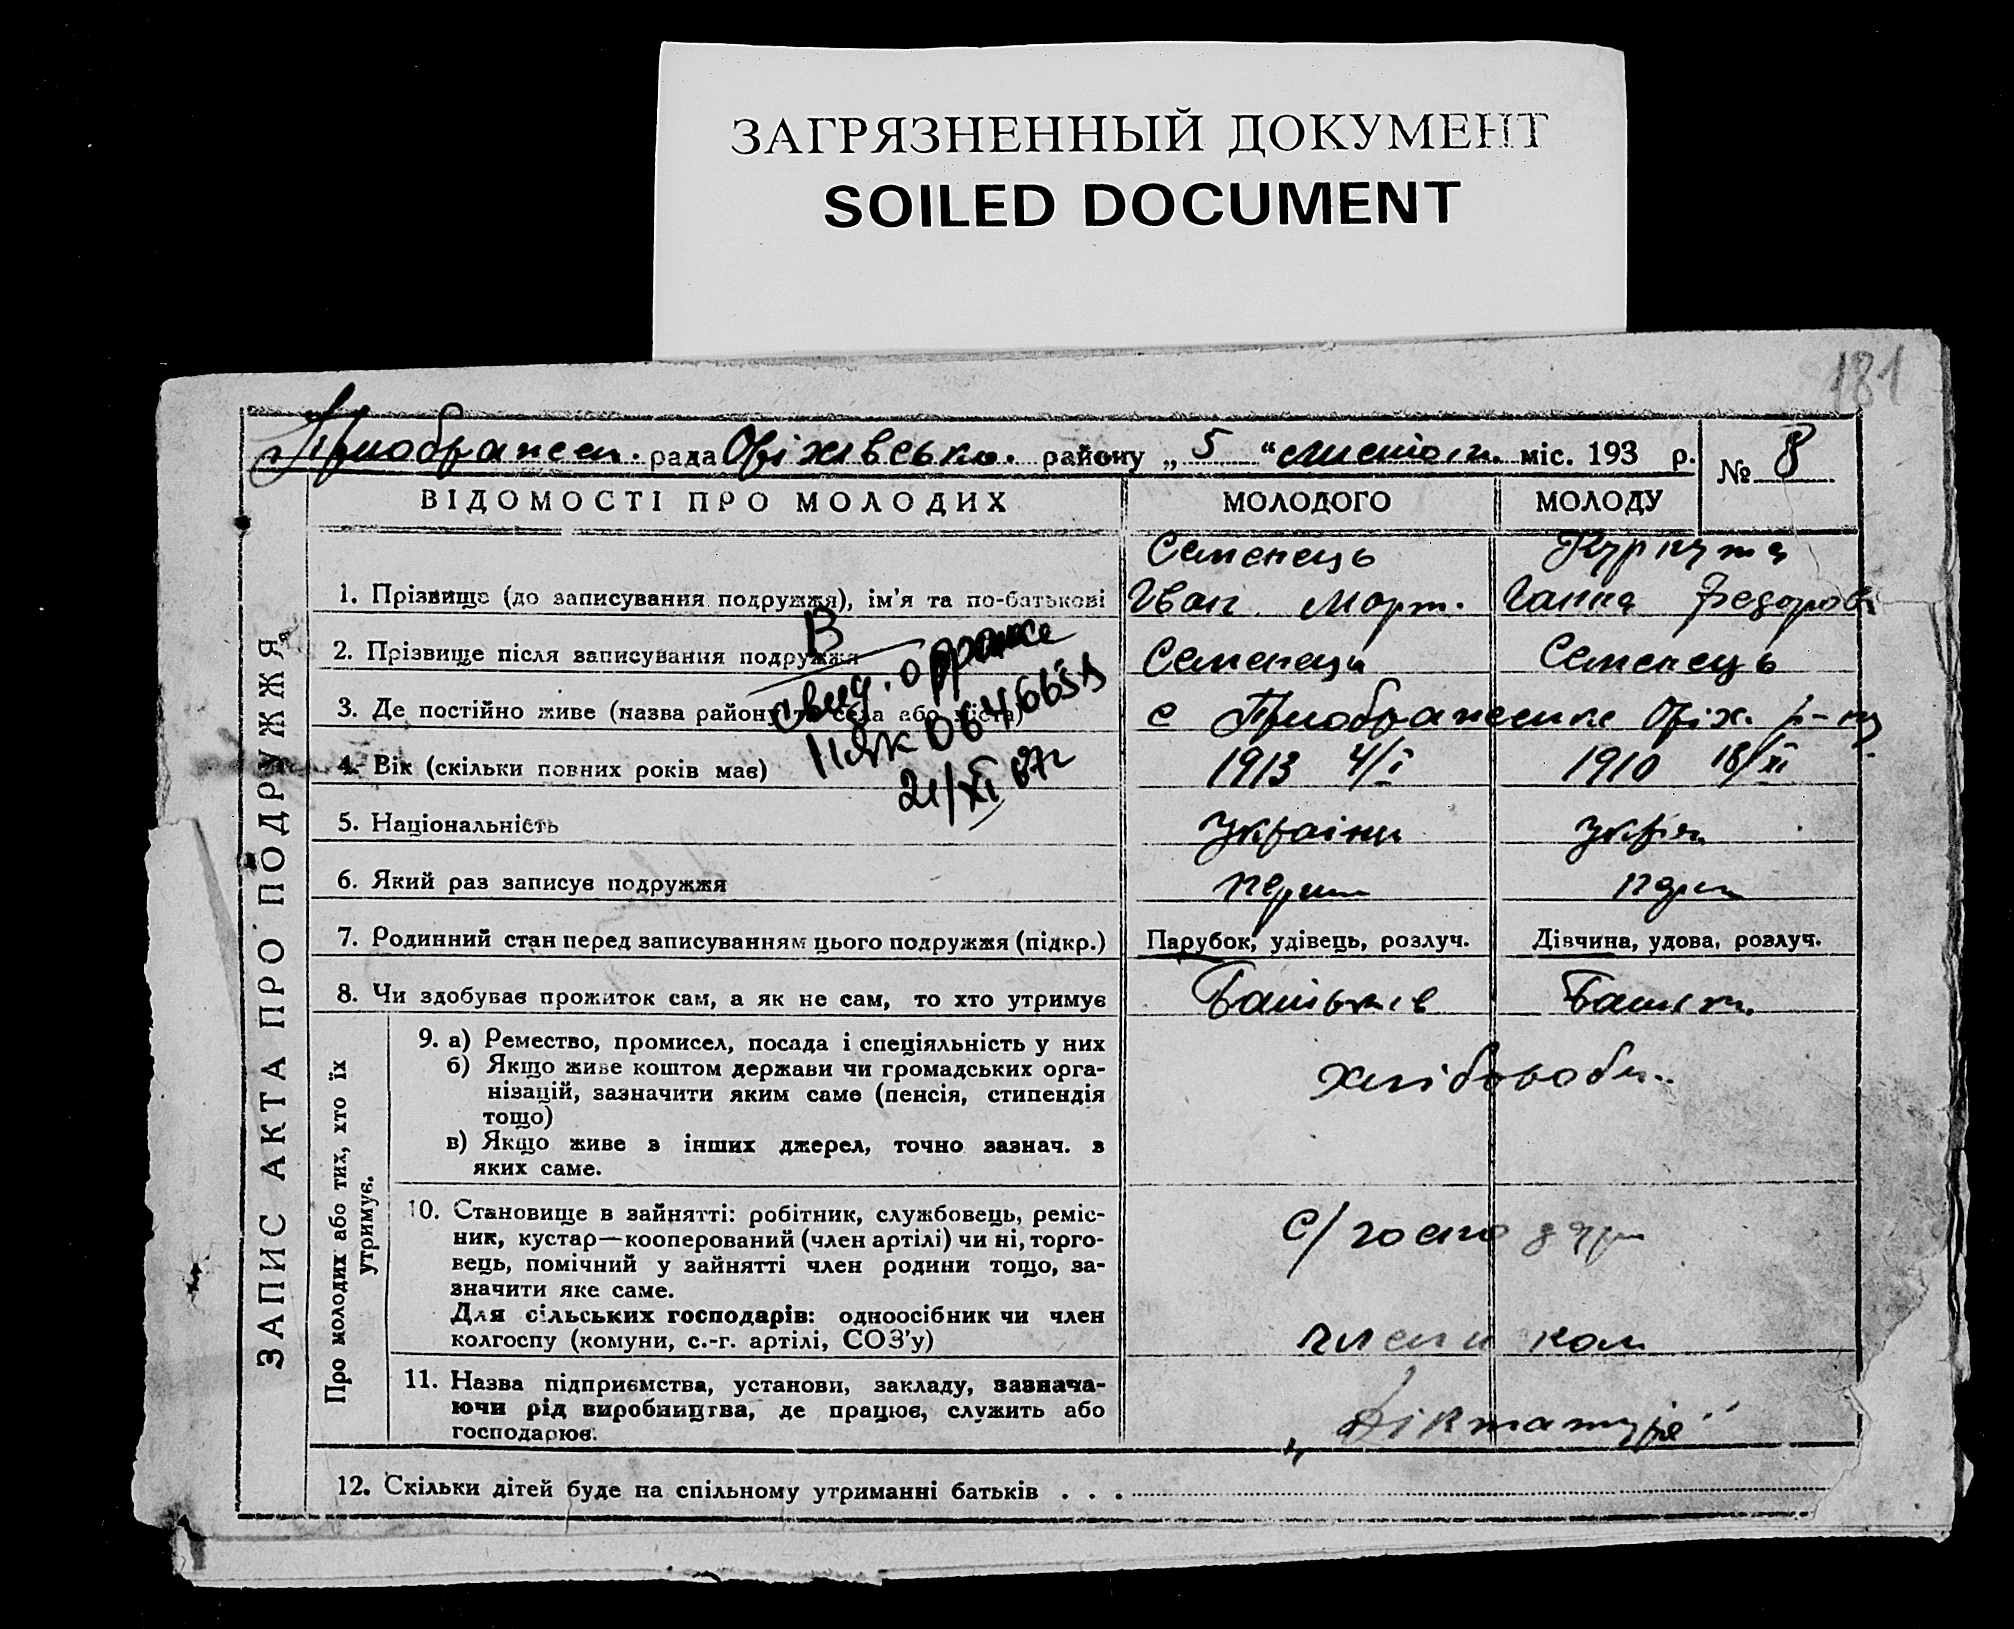 ЗАГРЯЗНЕННЫЙ ДОКУМЕНТ
SOILED DOCUMENT
181
Приображен. рада Оріхівсько. району „ 5 “ листоп. міс. 193 р. № 8
ВІДОМОСТІ ПРО МОЛОДИХ МОЛОДОГО МОЛОДУ
Семенець
1. Прізвище (до записування подружжя), ім'я та по-батькові Іван Март. Ганна Федоров
2. Прізвище після записування подружжя Семенець Семенець
В
3. Де постійно живе (назва району та села або міста) с Приображенка Оріх. р-ну
21/XI 87г
4. Вік (скільки повних років має) 1913 4/I 1910 18/XI
5. Національність україн укр
6. Який раз записує подружжя перш перш
7. Родинний стан перед записуванням цього подружжя (підкр.) Парубок, удівець, розлуч. Дівчина, удова, розлуч.
8. Чи здобуває прожиток сам, а як не сам, то хто утримує Батьків Батьк.
ЗАПИС АКТА ПРО ПОДРУЖЖЯ
Про молодих або тих, хто їх
утримує.
9. а) Ремество, промисел, посада і спеціяльність у них
б) Якщо живе коштом держави чи громадських орга-
нізацій, зазначити яким саме (пенсія, стипендія
тощо)
в) Якщо живе з інших джерел, точно зазнач. з
яких саме.
хліборобс.
10. Становище в зайнятті: робітник, службовець, реміс-
ник, кустар—кооперований (член артілі) чи ні, торго-
вець, помічний у зайнятті член родини тощо, за-
значити яке саме.
Для сільських господарів: одноосібник чи член
колгоспу (комуни, с.-г. артілі, СОЗ'у)
с/господар
члени кол
11. Назва підприємства, установи, закладу, зазнача-
ючи рід виробництва, де працює, служить або
господарює.
„Диктатура"
12. Скільки дітей буде на спільному утриманні батьків . . .